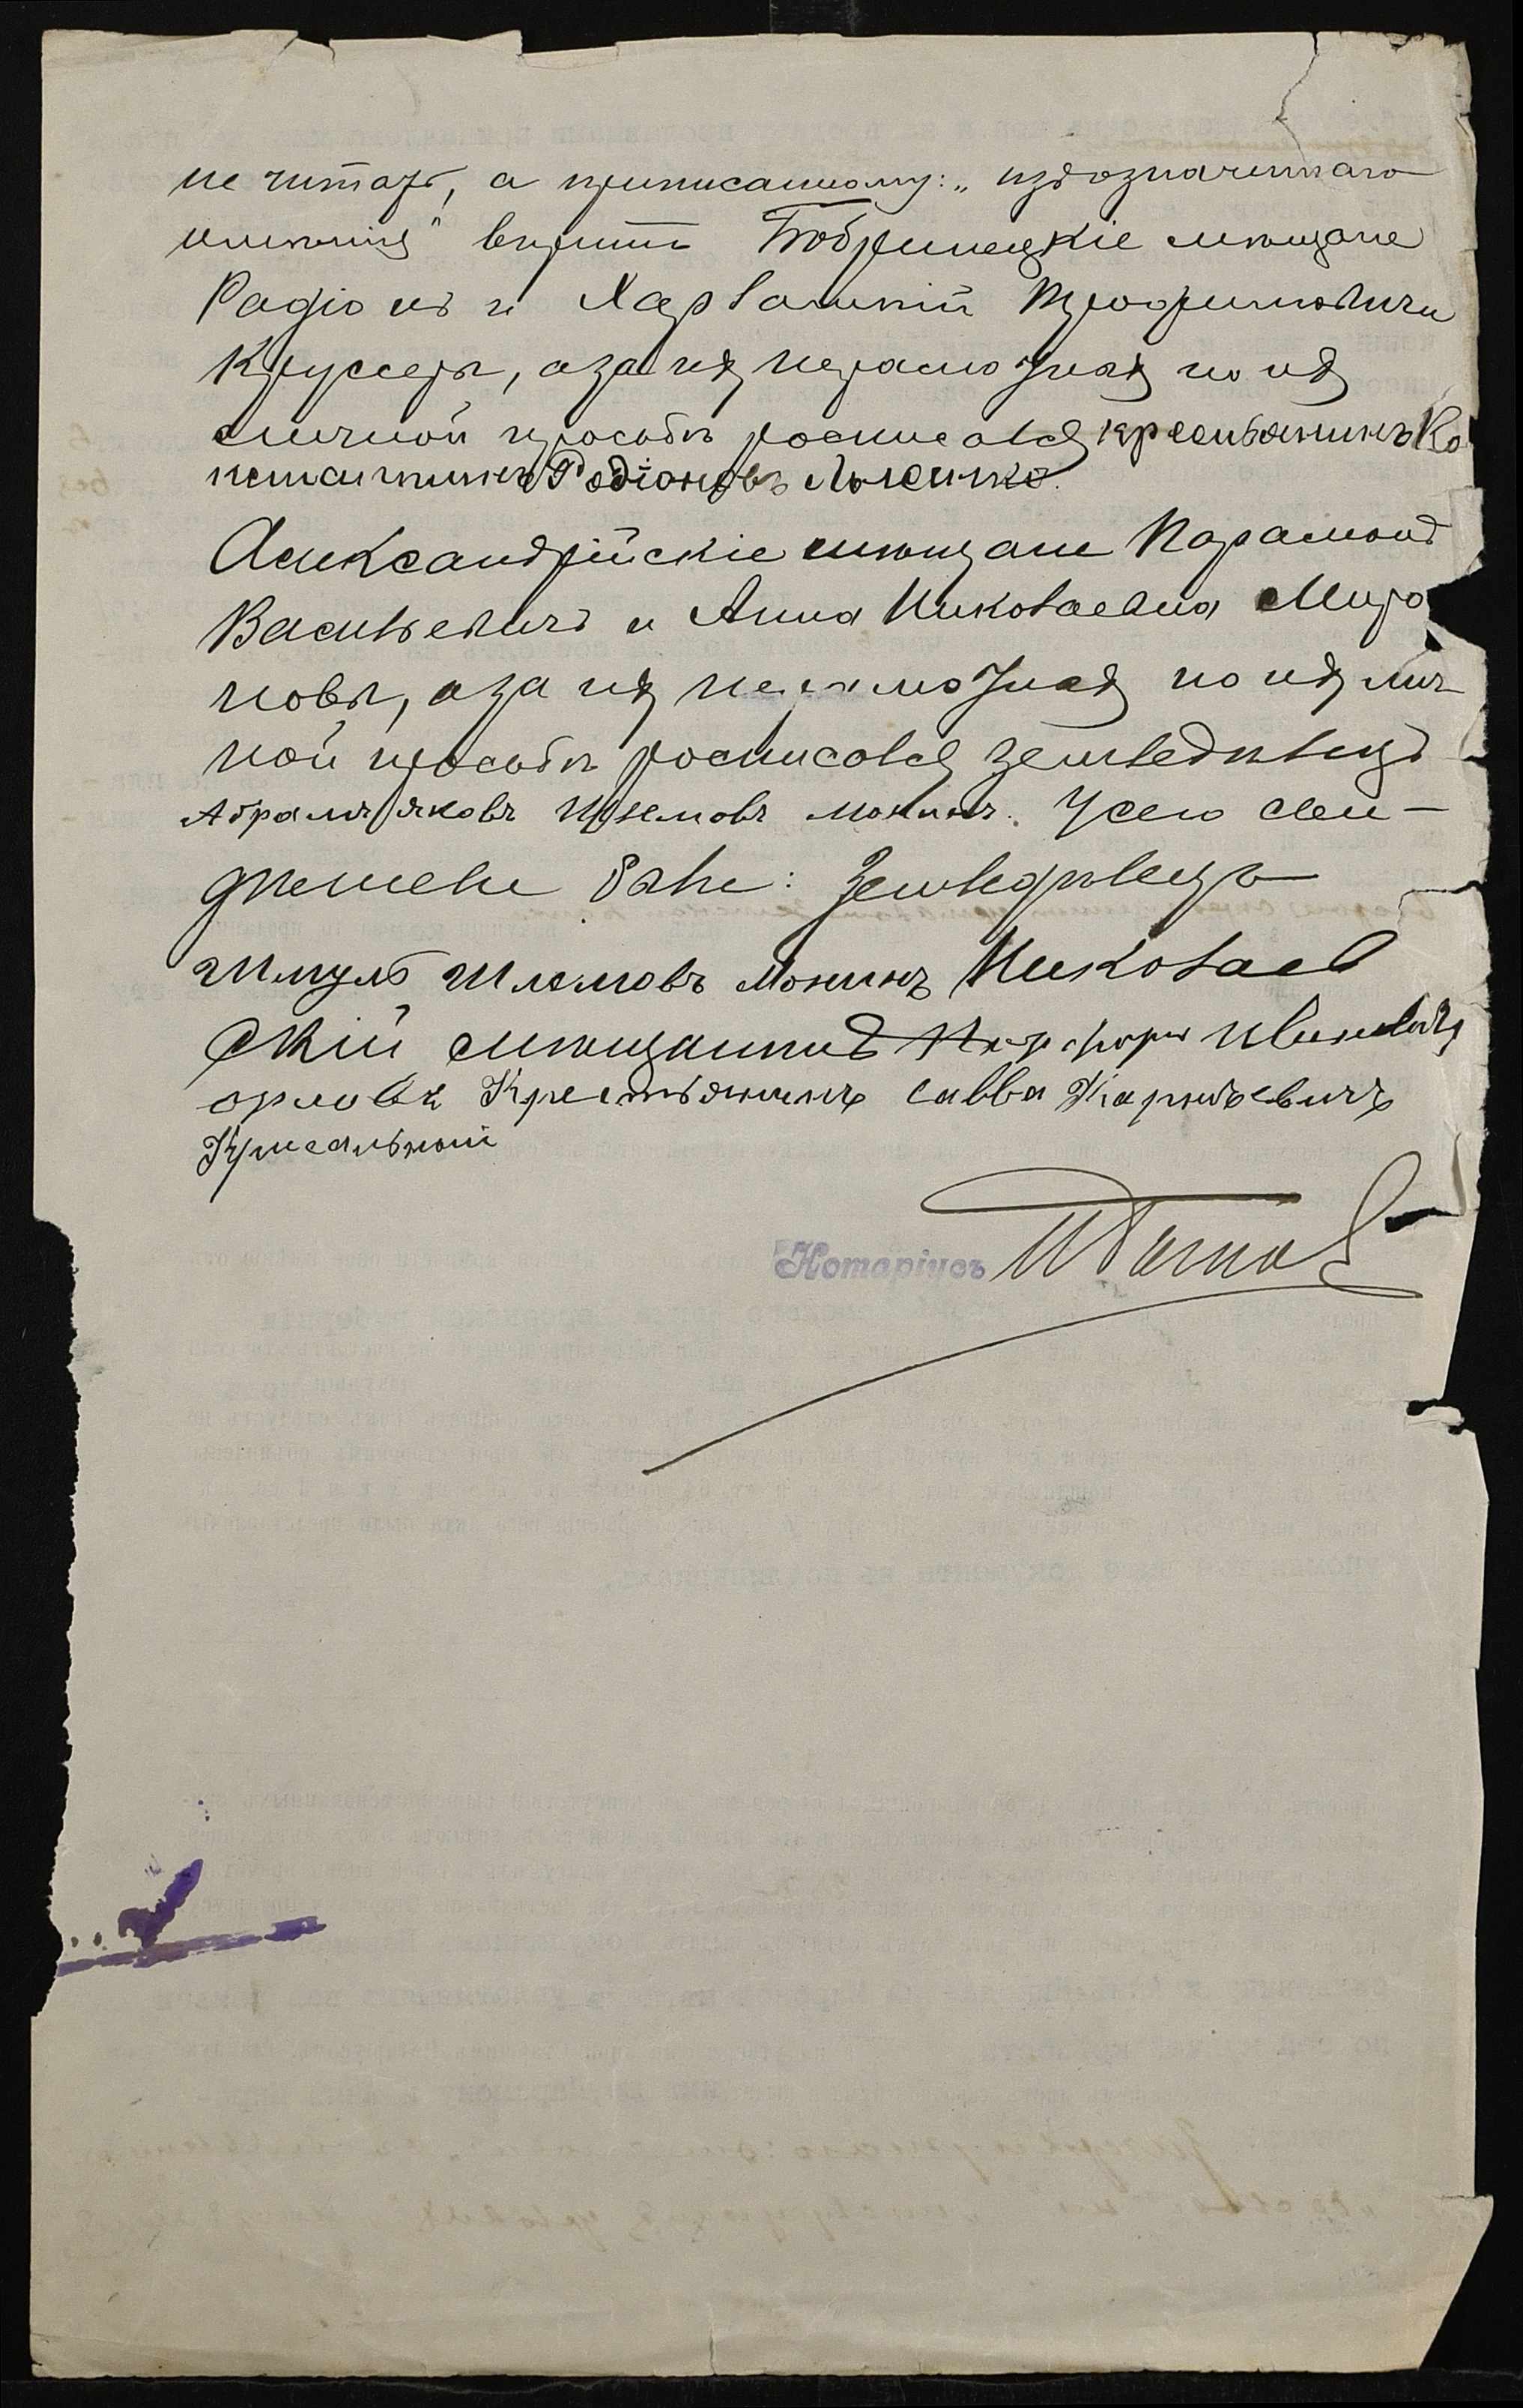 не читать, а приписанному: „изъ означеннаго
имѣнія" вѣрить Бобринецкіе мѣщане
Радіонъ и Харлампій Трофимовичи
Круссеръ, а за ихъ неграмотныхъ по ихъ
личной просьбѣ росписался крестьянинъ Ко
нстантинъ Родіоновъ
Александрійскіе мѣщане Парамонъ
Васильевичъ и Анна Николаевна Миро
новы, а за ихъ неграмотныхъ по ихъ лич
ной просьбѣ росписался земледѣлецъ
Абрамъ Яковъ Шлемовъ Монинъ. У сего сви-
дѣтелеми были: Земледѣлецъ
Шмуль Шлемовъ Монинъ Николаев
скій мѣщанинъ Ивановичъ
орловъ Крестьянинъ Савва Карповичъ
Нотаріусъ